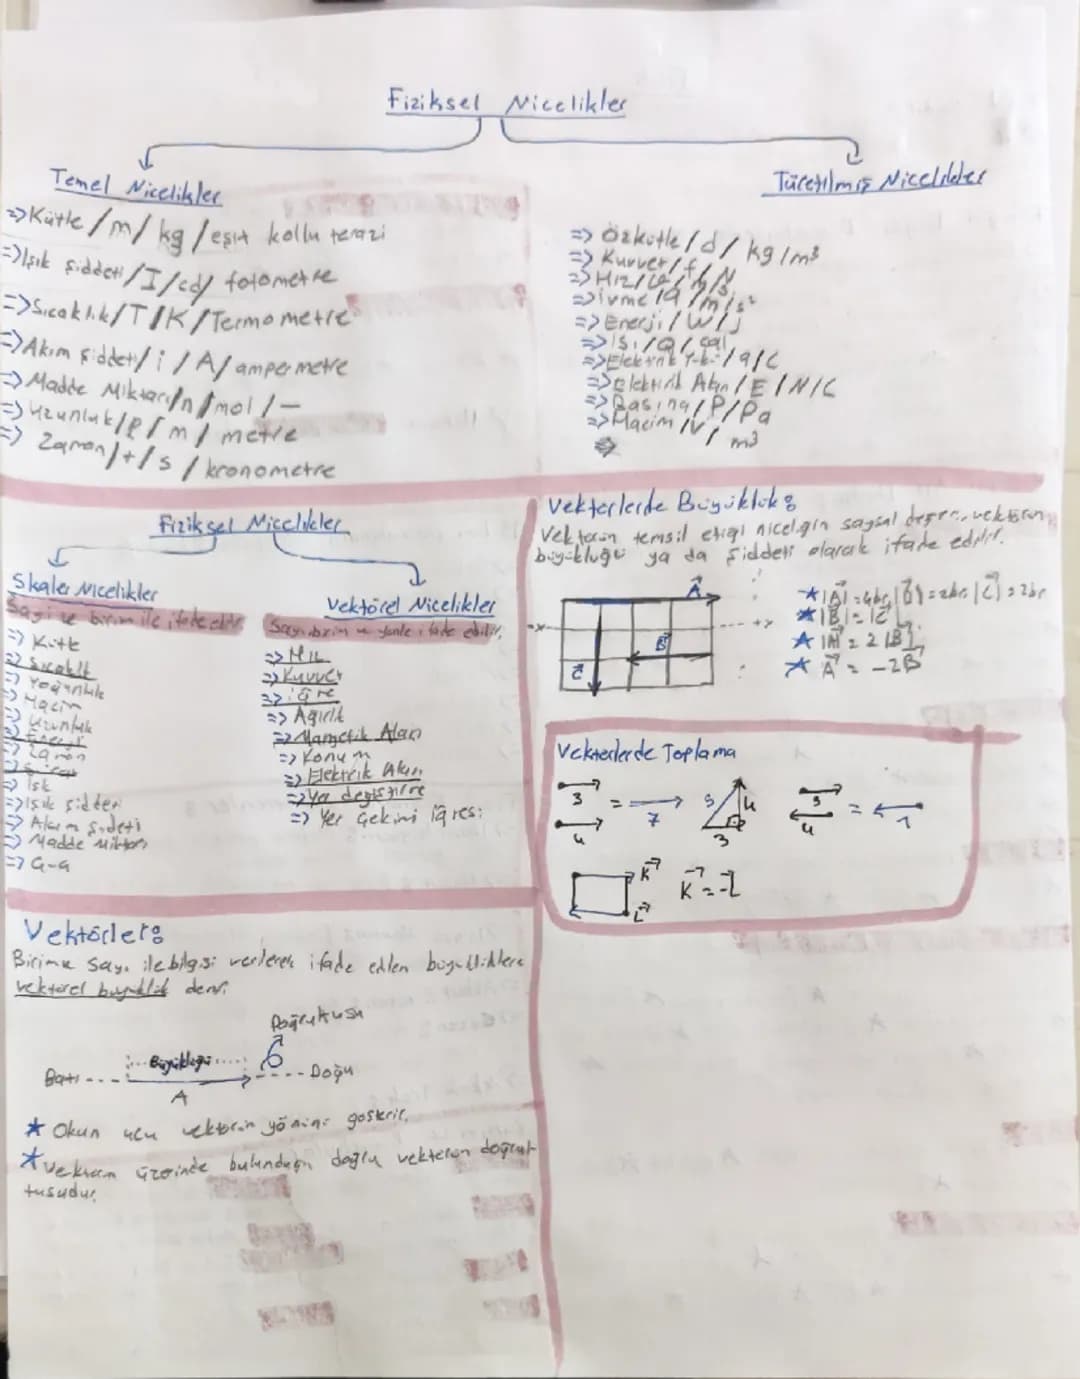 Fiziksel Nicelikler
Temel Nicelikler
=> Kütle / m / kg / eşit kollu terazi
=> Işık şiddeti / I / cd / fotometre
=> Sıcaklık / T / K / Termometre
=> Akım şiddeti / i / A / ampermetre
=> Madde Miktarı / n / mol / —
=> Uzunluk / l / m / metre
=> Zaman / t / s / kronometre
Türetilmiş Nicelikler
=> Özkütle / d / kg/m³
=> Kuvvet / f / N
=> Hız / / m/s
=> ivme / a / m/s²
=> Enerji / W / j
=> Isı / Q / cal
=> Elektrik Yükü / q / C
=> Elektrik Alan / E / N/C
=> Basınç / P / Pa
=> Hacim / V / m³
=>
Fiziksel Nicelikler
Skaler Nicelikler
Sayı ve birim ile ifade edilir
=> Kütle
=> Sıcaklık
=> Yoğunluk
=> Hacim
=> Uzunluk
=> Enerji
=> Zaman
=> Isı
=> Işık şiddeti
=> Akım şiddeti
=> Madde Miktarı
Vektörel Nicelikler
Sayı, birim ve yönle ifade edilir.
=> Hız
=> Kuvvet
=> Ağırlık
=> Manyetik Alan
=> Konum
=> Elektrik Alan
=> Yer değiştirme
=> Yer Çekimi
Vektörlerde Büyüklük:
Vektörün temsil ettiği niceliğin sayısal değeri, vektörün
büyüklüğü ya da şiddeti olarak ifade edilir.
A
-x
+x
B
C
* |A| = 4br, |B| = 2br |C| = 2br
* |B| = |C|
* |A| = 2 |B|
* A = -2B
Vektörlerde Toplama
3
4
= 7
5
4
3
3
4
= 1
K
L
K = -L
Vektörler:
Birim ve sayı ile bilgisi verilerek ifade edilen büyüklüklere
vektörel büyüklük denir.
Doğrultusu
Büyüklüğü
Batı
Doğu
A
* Okun ucu vektörün yönünü gösterir.
* Vektörün üzerinde bulunduğu doğru vektörün doğrul-
tusudur.